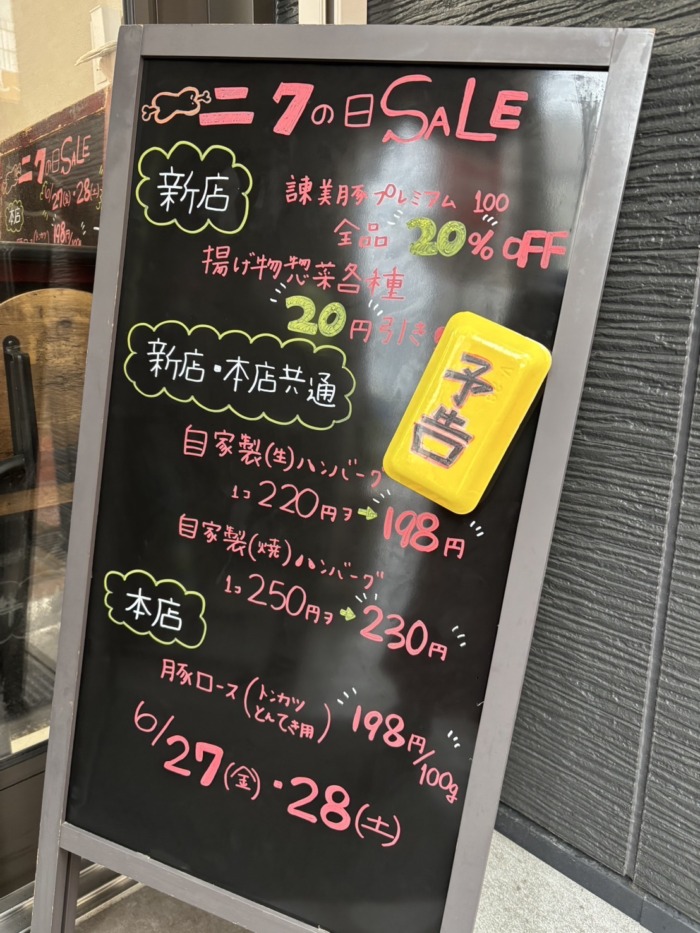 ニクの日SALE
新店
諫美豚プレミアム 100
全品 20%OFF
揚げ物惣菜各種
20円引き
予告
新店・本店共通
自家製(生)ハンバーグ
1コ 220円ヲ→198円
自家製(焼)ハンバーグ
1コ 250円ヲ→230円
本店
豚ロース(トンカツ とんてき用) 198円/100g
6/27(金)・28(土)
ニクの日SALE
6/27(金)・28(土)
本店